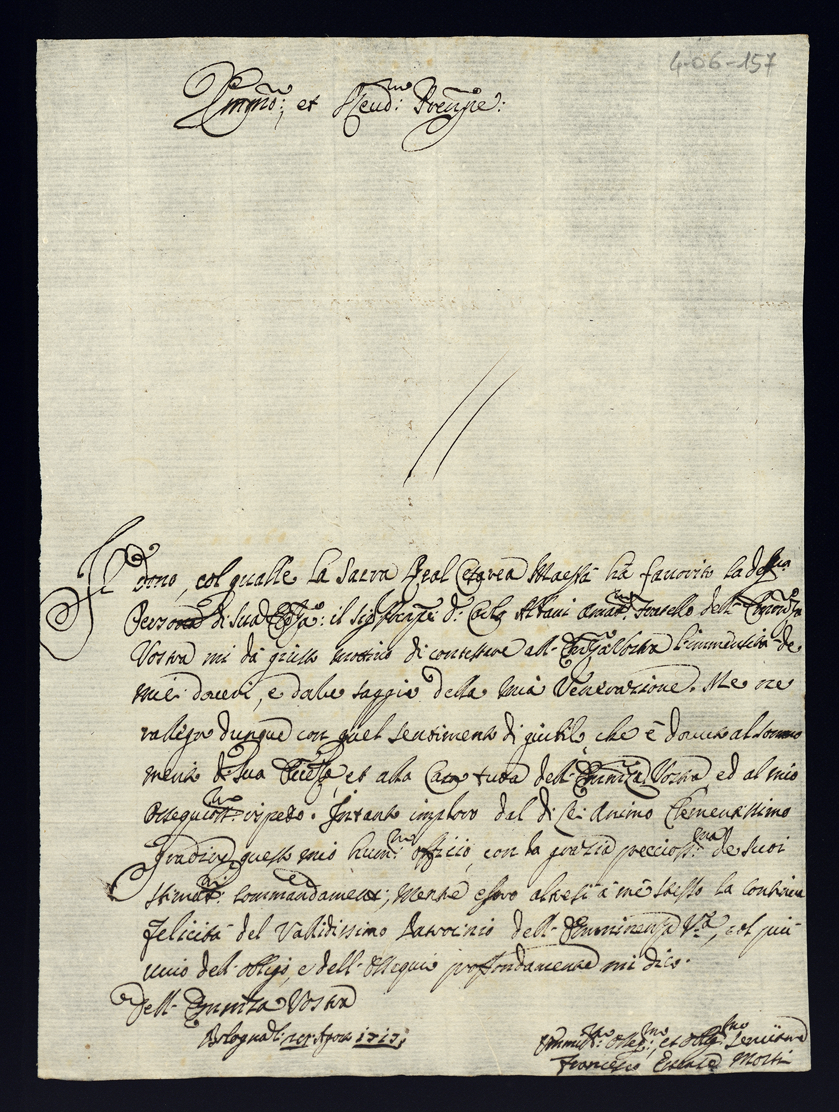 4-06-157
Emmo: et Reudmo: Prencipe:
Il dono, col qualle la Sacra Real Cesarea Maestà hà favorito la
Persona di Sua: il Sigr D: Carlo Albani amatmo: fratello dell-
Vostra mi dà giusto motivo di contestare all- Vostra l'immensità de
miei doveri, e dalle saggio della mià Venerazione. Me ne
rallegro dunque con quel sentimento di giubilo, che è dovuto al sommo
merito di sua et alla Casa tutta dell- Eminza Vostra ed al mio
ossequiosmo rispeto. Intanto imploro dal di lei Animo Clementissimo
gradire questo mio humo: officio, con la grazia preciosma: de suoi
stimatmi: commandamenti; Mentre à mè stesso la continua
felicità del Vallidissimo Patrocinio dell- Emminenza Va, col più
vivo del obligo, e dell- Ossequio proffondamente mi dico.
Dell- Eminza Vostra
Bologna li: Agosto 1717;
Ummo: Osseqmo:, et Obligmo Servitore
Francesco Estense Mosti